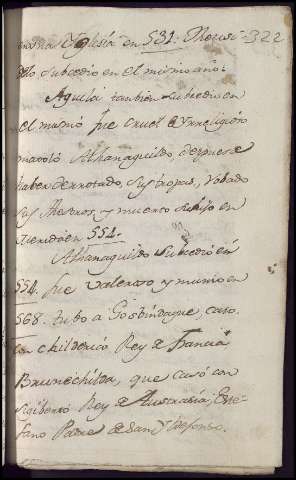 en una Yglesia en 531. Theude- 322
selo subcedio en el mismo año:
Aquila tanbien subcedio en
el mismo fue cruel e Yrreligioso
matolo Athanagildo despues de
haber derrotado, sus tropas, robado
sus thesoros, y muerto su hijo en
Merida en 554.
Athanaguildo subcedio en
554. fue valeroso y murio en
568. tubo a Gosbinda que, caso
con Childerico Rey de Francia
Brunechilda, que casó con
Sigiberto Rey de Austrasia; Este-
fano Padre de San Yldefonso.